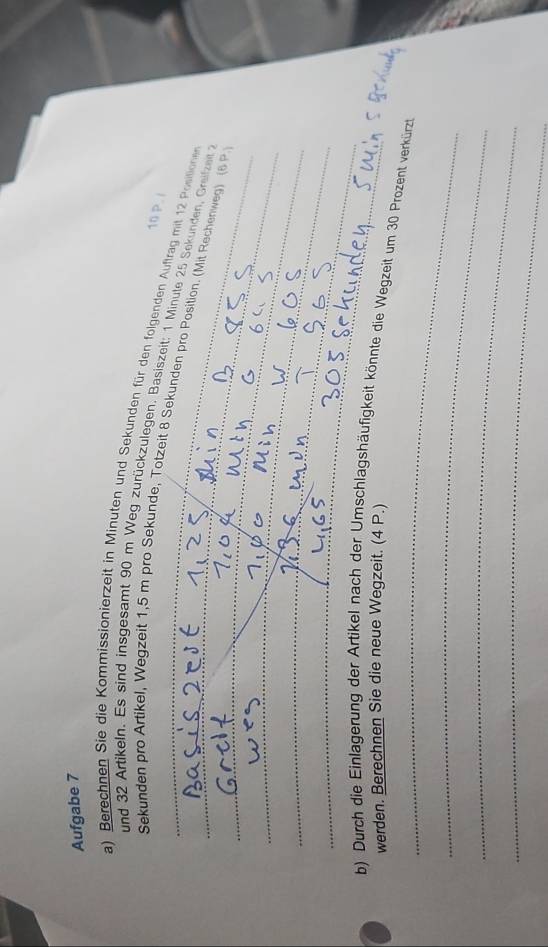 Aufgabe 7
10 P. /
a) Berechnen Sie die Kommissionierzeit in Minuten und Sekunden für den folgenden Auftrag mit 12 Positionen
und 32 Artikeln. Es sind insgesamt 90 m Weg zurückzulegen. Basiszeit: 1 Minute 25 Sekunden, Greifzeit 2
Sekunden pro Artikel, Wegzeit 1,5 m pro Sekunde, Totzeit 8 Sekunden pro Position. (Mit Rechenweg) (6 P.)
Basis zeit 1,25 min B 85 S
Greif 1,04 min G 64 S
weg 1,00 min W 60 S
1,36 min T 96 S
4,65 305 Sekunden 5 min 5 Sekunden
b) Durch die Einlagerung der Artikel nach der Umschlagshäufigkeit könnte die Wegzeit um 30 Prozent verkürzt
werden. Berechnen Sie die neue Wegzeit. (4 P.)